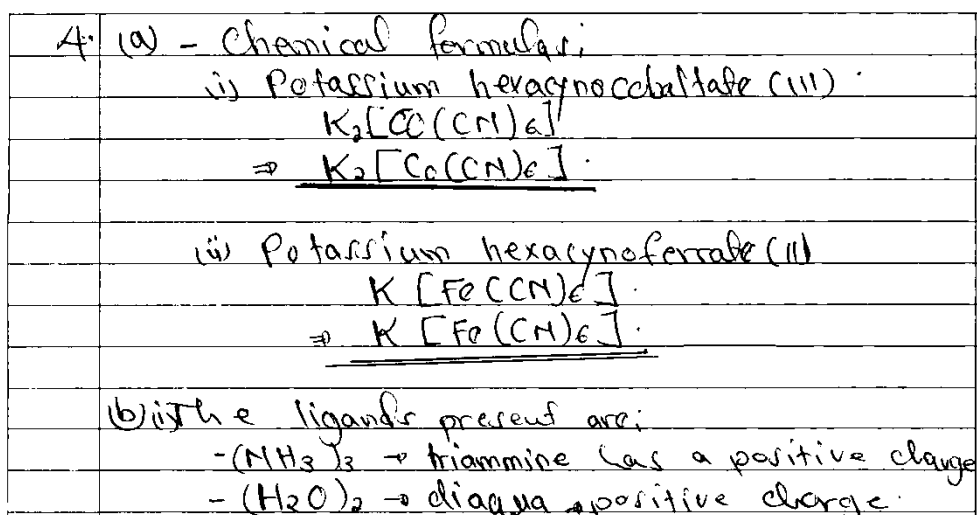 4. (a) - Chemical formulas;
(i) Potassium hexacynocobaltate (III).
K₂[CO(CN)6]
⇒ K₂[Co(CN)6].
(ii) Potassium hexacynoferrate (II)
K [Fe(CN)6].
⇒ K [Fe(CN)6].
(b) (i) The ligands present are;
-(NH3)3 → triammine has a positive charge
-(H2O)2 → diaqua → positive charge.